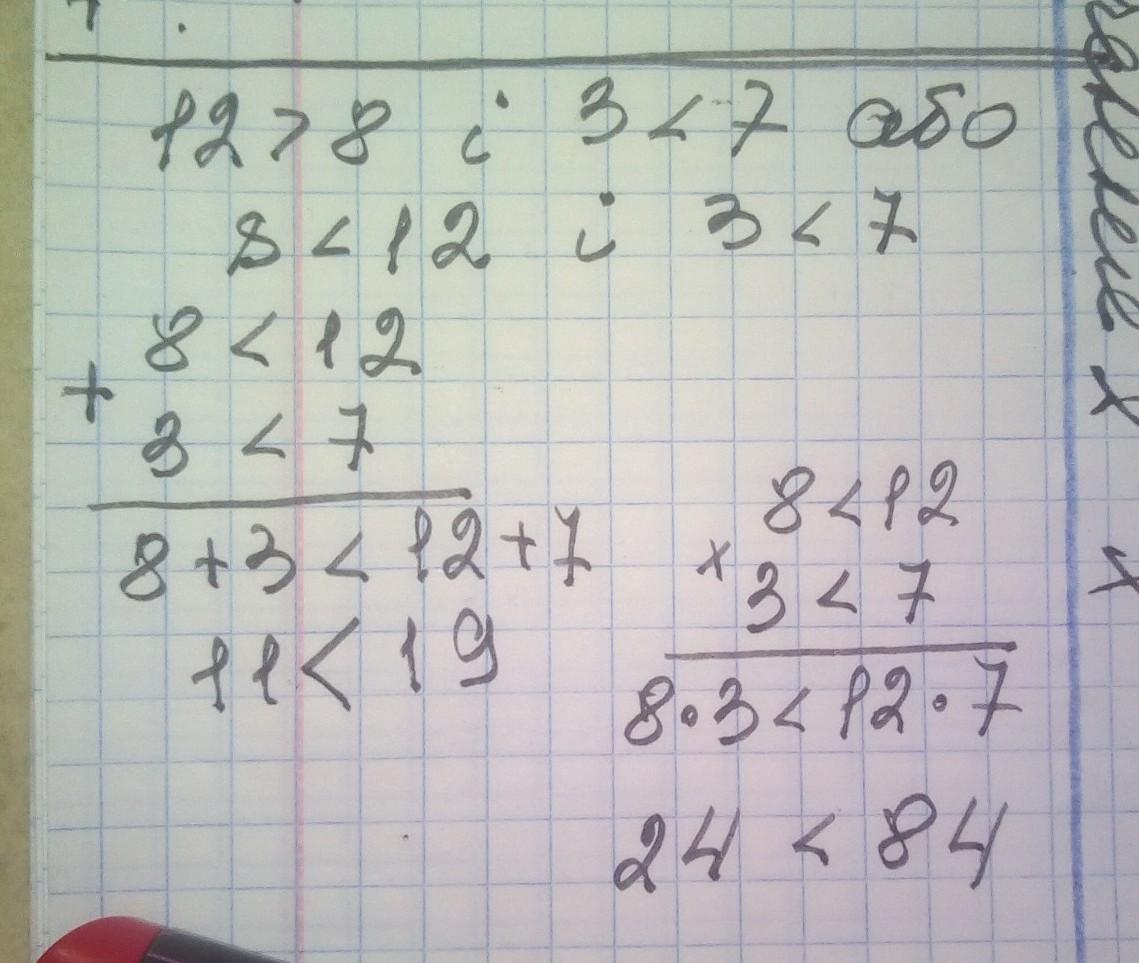 12 > 8 і 3 < 7 або
8 < 12 і 3 < 7
8 < 12
+
3 < 7
8 + 3 < 12 + 7
11 < 19
8 < 12
×
3 < 7
8 · 3 < 12 · 7
24 < 84
х
х